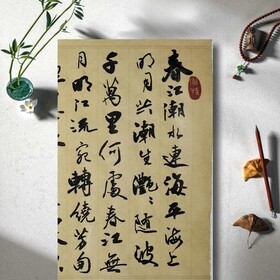 春江潮水連海平海上
明月共潮生灧〻隨波
千萬里何處春江無
月明江流宛轉繞芳甸